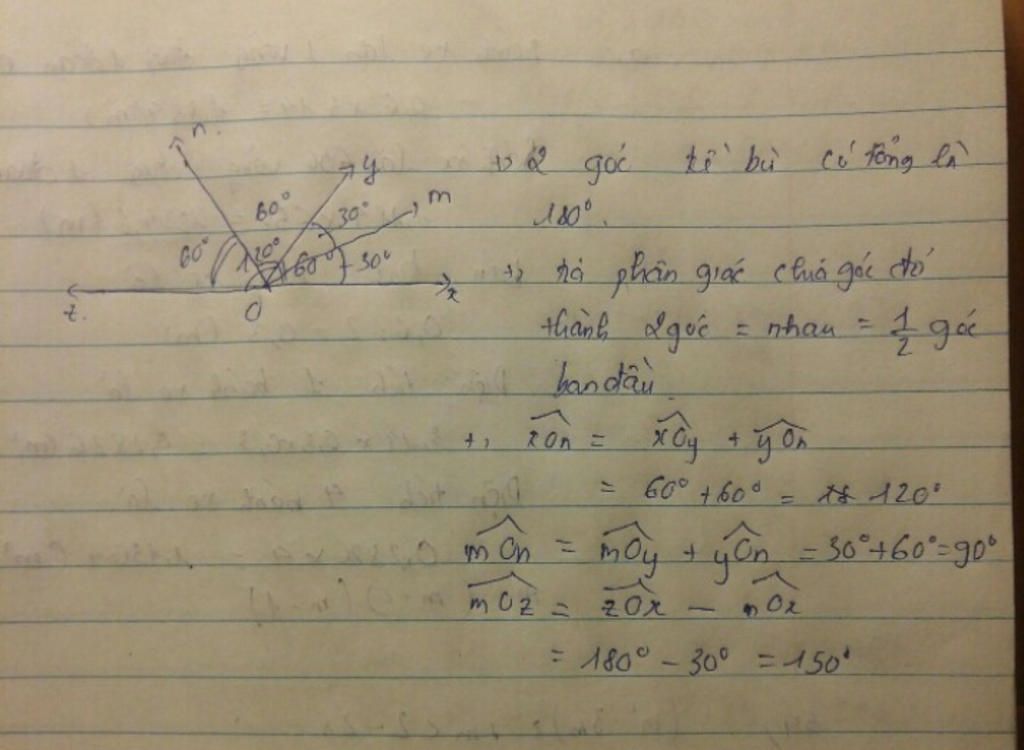 n.
y
m
60°
30°
60°
120°
60°
30°
z.
O
x
+, 2 góc kề bù có tổng là
180°.
+, tia phân giác chia góc đó
thành 2 góc = nhau = 1/2 góc
ban đầu.
+, xOn = xOy + yOn
= 60° + 60° = 120°
mOn = mOy + yOn = 30° + 60° = 90°
mOz = zOx - mOx
= 180° - 30° = 150°